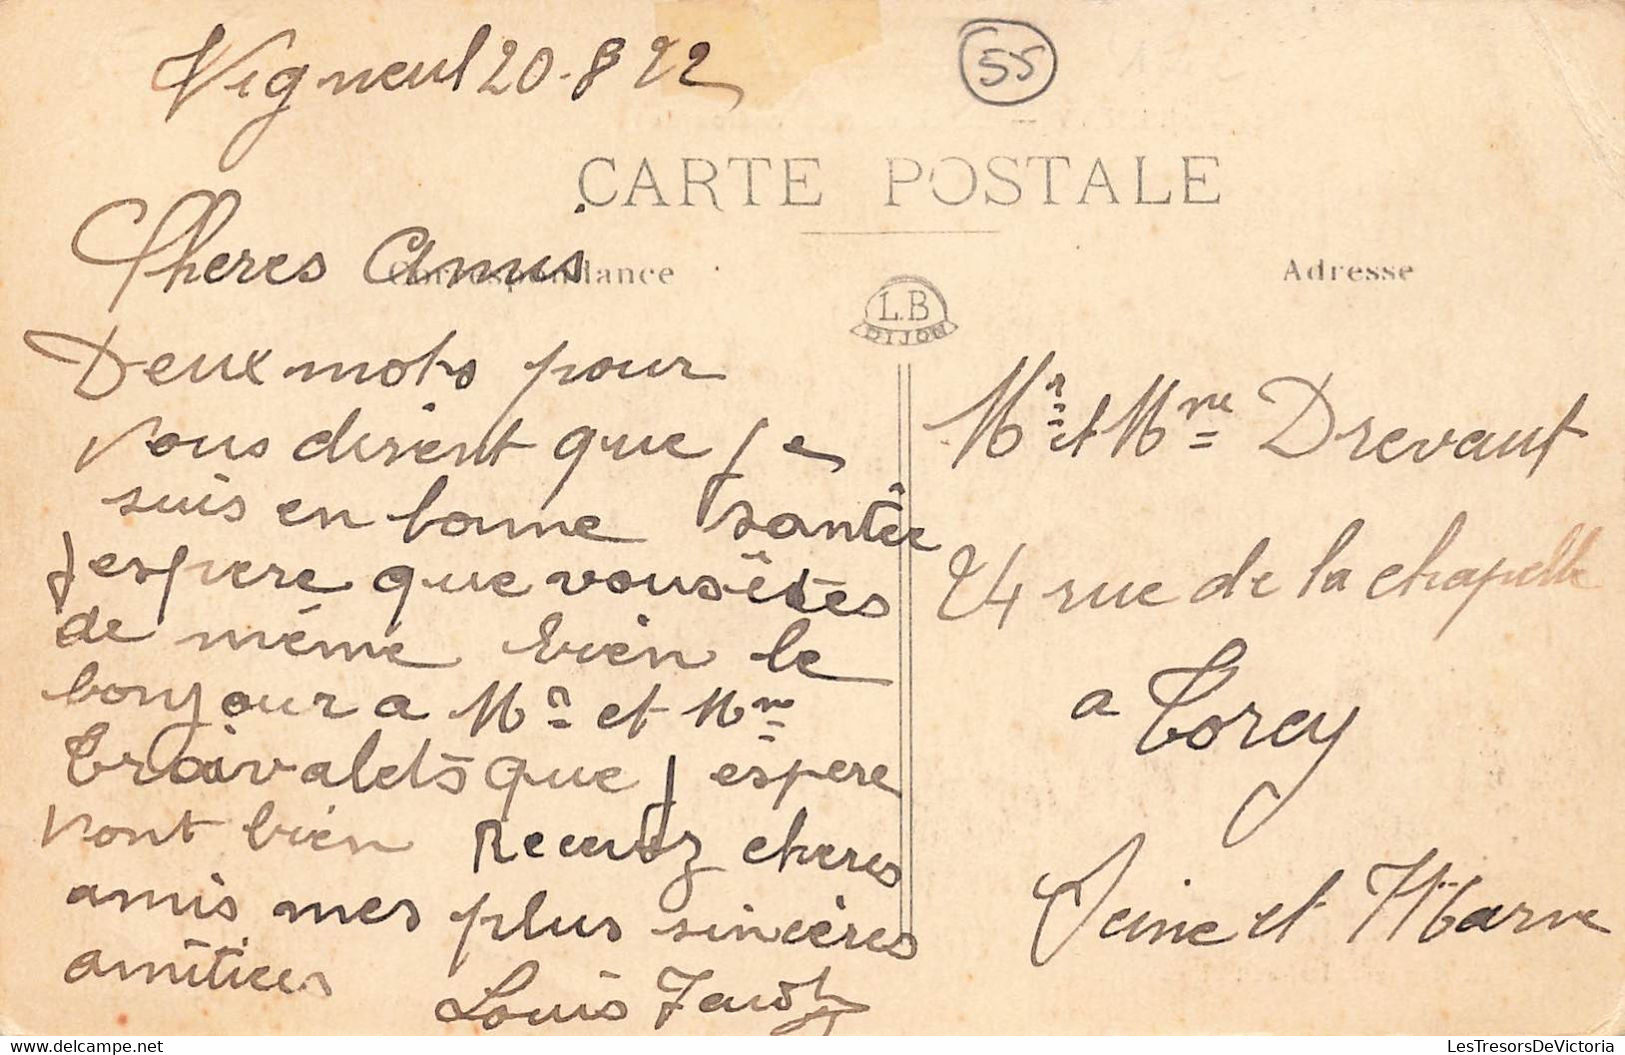 Vigneul 20-8 22
55
CARTE POSTALE
Correspondance
Adresse
L.B
DIJON
Cheres Amis
Deux mots pour
vous dirent que je
suis en bonne santée
j espere que vous êtes
de même bien le
bonjour a Mr et Mme
que j espere
vont bien Recevez cheres
amis mes plus sincères
amitiees
Louis
Mr et Mme Drevaut
24 rue de la chapelle
a Torcy
Seine et Marne
LesTresorsDeVictoria